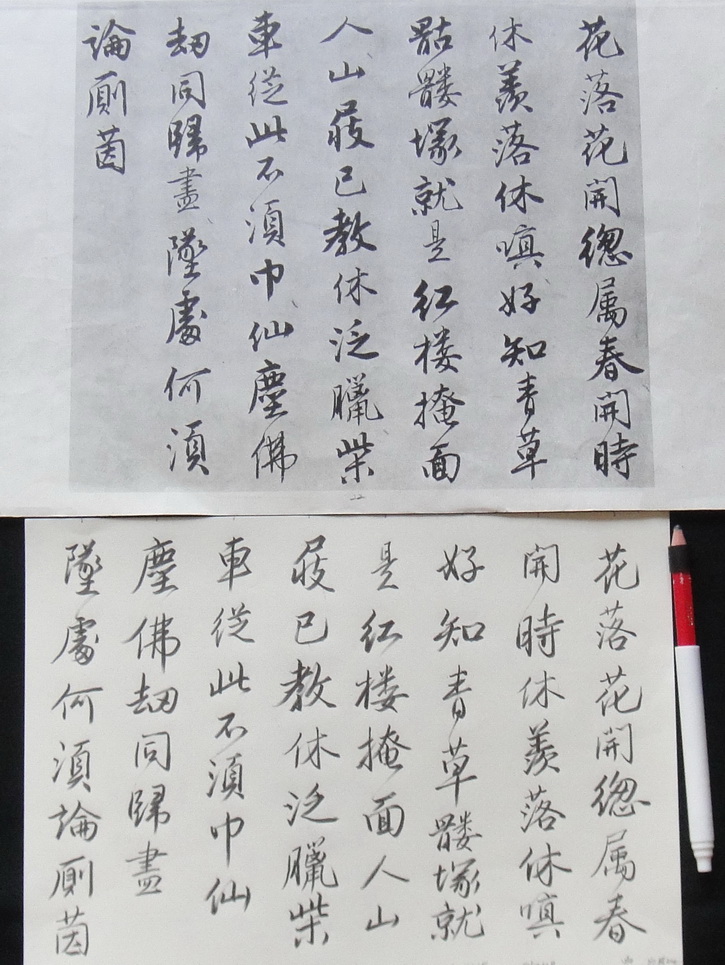 花落花開總属春開時
休羨落休嗔好知青草
骷髏塚就是红楼掩面
人山屐已教休泛臘柴
車從此不須巾仙塵佛
劫同歸盡墜處何須
論厠茵
花落花開總属春
開時休羨落休嗔
好知青草髏塚就
是红楼掩面人山
屐已教休泛臘柴
車從此不須巾仙
塵佛劫同歸盡
墜處何須論厠茵